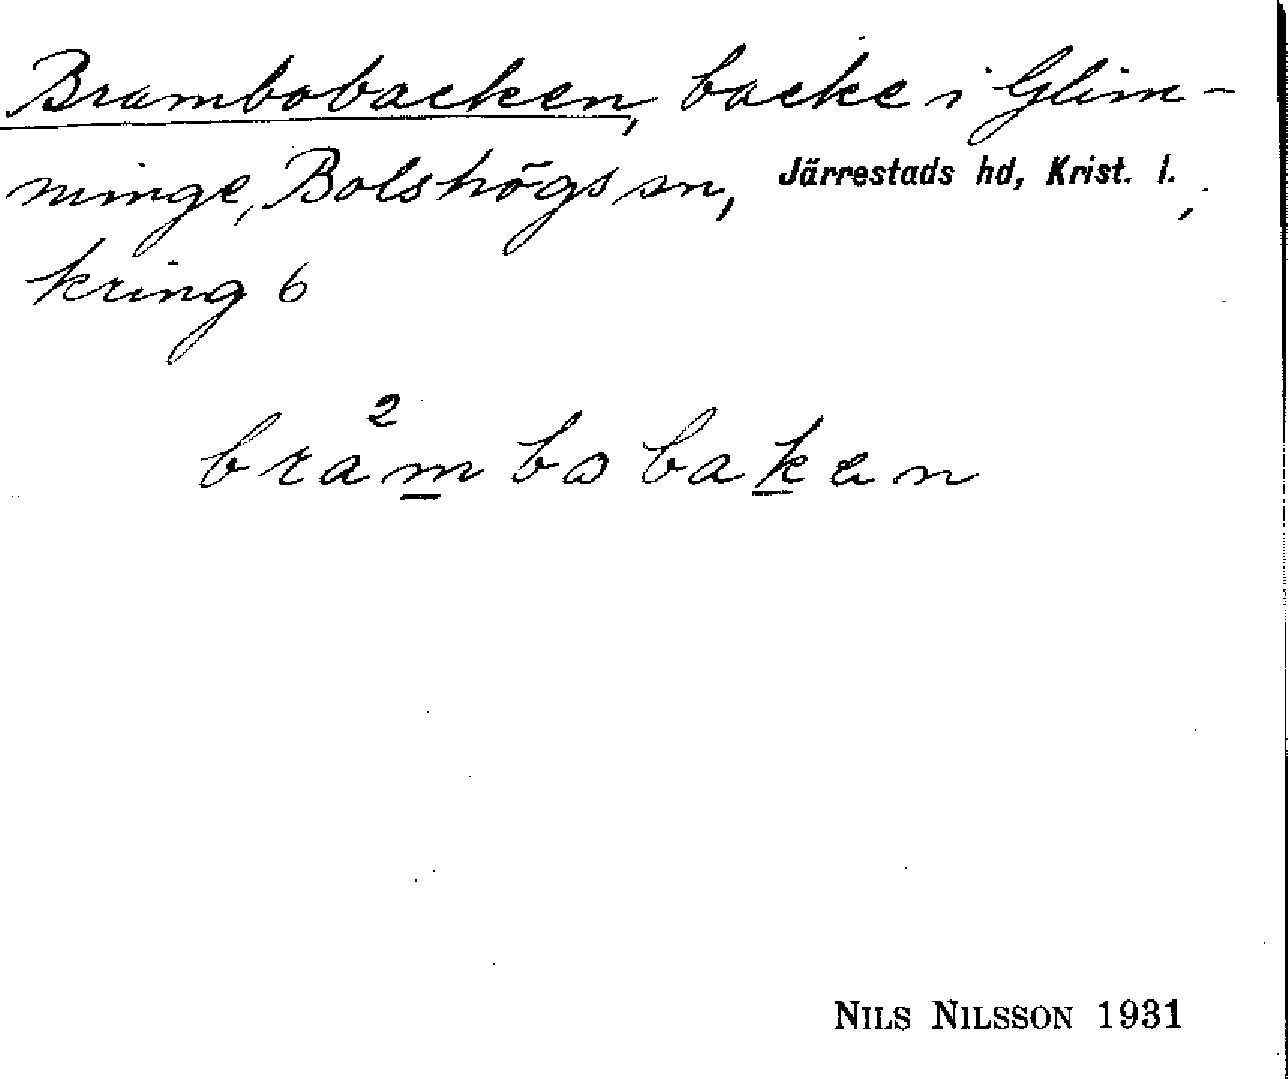 Brambobacken, backe i Glim-
minge, Bolshögs sn, Järrestads hd, Krist. l.,
kring 6
bra²mbobaken
NILS NILSSON 1931